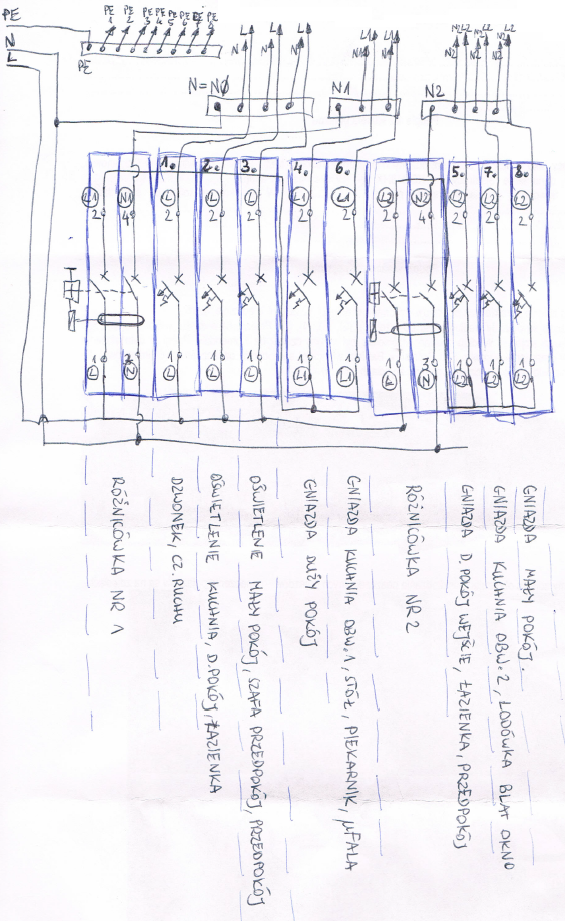 PE
N
L
PE 1 PE 2 PE 3 PE 4 PE 5 PE 6 PE 7 PE 8
PE
N L N L N L
N L1 N L1
N2 L2 N2 L2 N2 L2
N=NØ
N1
N2
1. 2. 3. 4. 6. 5. 7. 8.
L1 N1 L L L L1 L1 L2 N2 L2 L2 L2
2 4 2 2 2 2 2 2 4 2 2 2
1 3 1 1 1 1 1 1 3 1 1 1
L N L L L L1 L1 L N L2 L2 L2
GNIAZDA MAŁY POKÓJ.
GNIAZDA KUCHNIA OBW.2, LODÓWKA BLAT OKNO
GNIAZDA D.POKÓJ WEJŚCIE, ŁAZIENKA, PRZEDPOKÓJ
RÓŻNICÓWKA NR 2
GNIAZDA KUCHNIA OBW.1, STÓŁ, PIEKARNIK, µFALA
GNIAZDA DUŻY POKÓJ
OŚWIETLENIE MAŁY POKÓJ, SZAFA PRZEDPOKÓJ, PRZEDPOKÓJ
OŚWIETLENIE KUCHNIA, D.POKÓJ, ŁAZIENKA
DZWONEK, CZ. RUCHU
RÓŻNICÓWKA NR 1